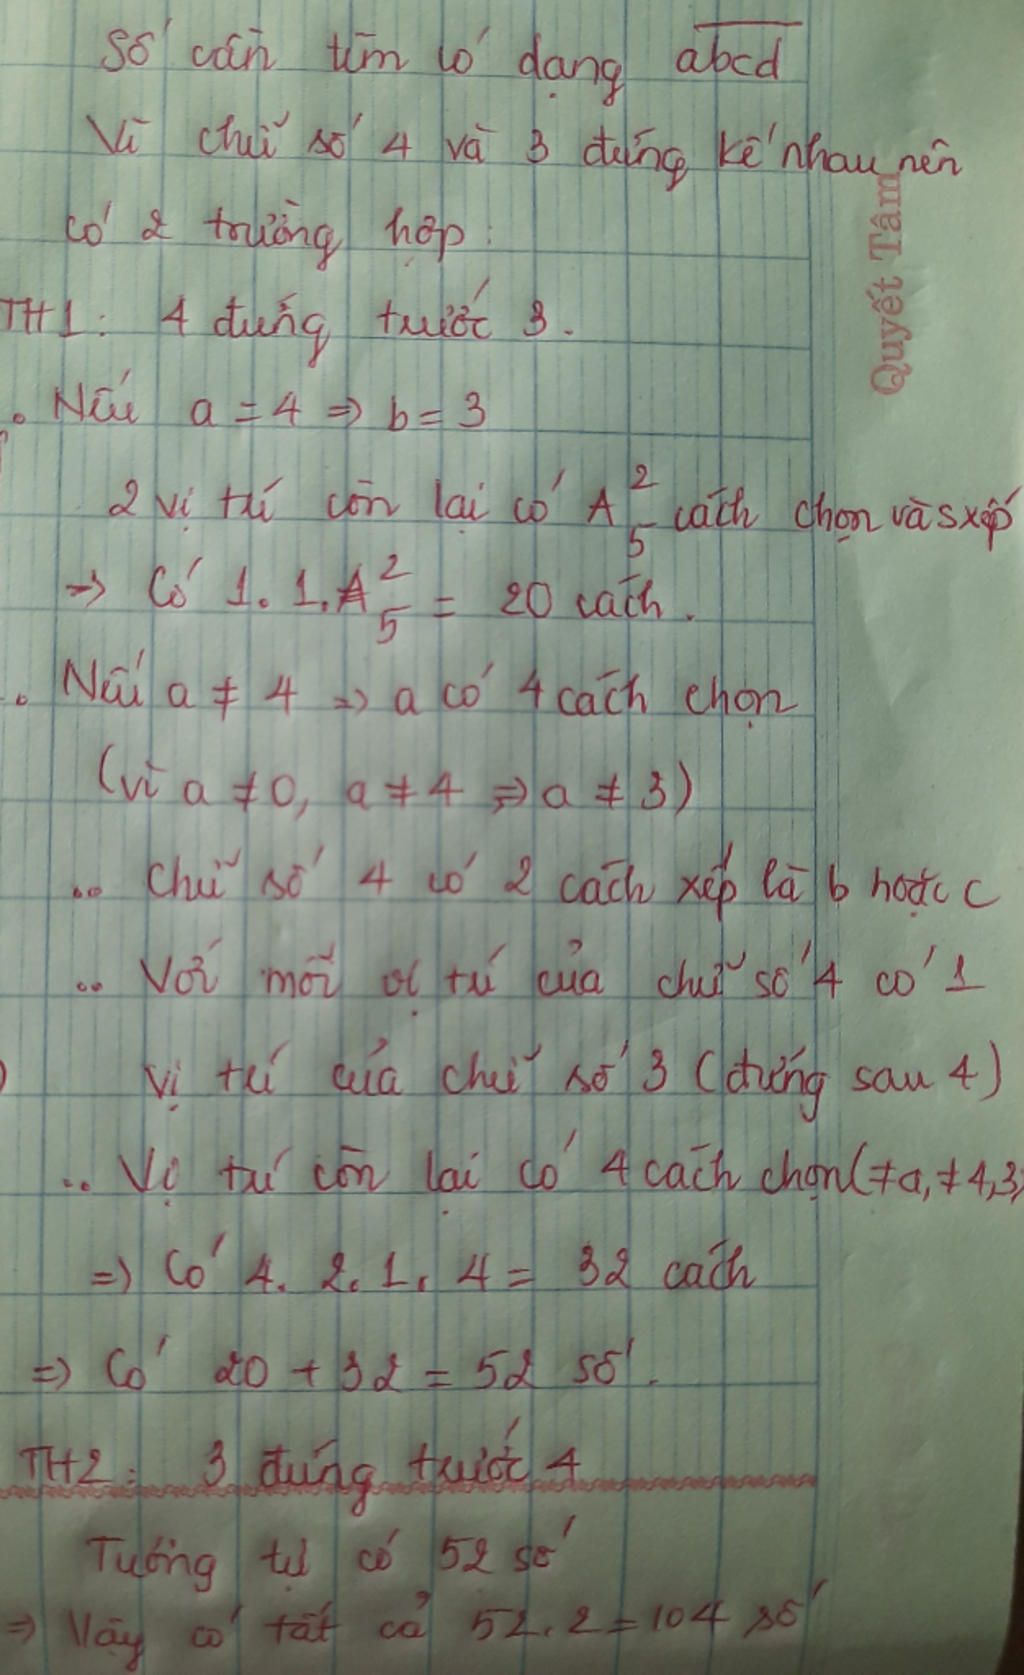 Số cần tìm có dạng abcd
Vì chữ số 4 và 3 đứng kế nhau nên
có 2 trường hợp:
TH1: 4 đứng trước 3.
. Nếu a = 4 => b = 3
2 vị trí còn lại có A²₅ cách chọn và sxếp
=> Có 1. 1. A²₅ = 20 cách.
. Nếu a ≠ 4 => a có 4 cách chọn
(vì a ≠ 0, a ≠ 4 => a ≠ 3)
.. Chữ số 4 có 2 cách xếp là b hoặc c
.. Với mỗi vị trí của chữ số 4 có 1
vị trí của chữ số 3 (đứng sau 4)
.. Vị trí còn lại có 4 cách chọn (≠a, ≠4,3)
=> Có 4. 2. 1. 4 = 32 cách
=> Có 20 + 32 = 52 số.
TH2: 3 đứng trước 4
Tương tự có 52 số
=> Vậy có tất cả 52. 2 = 104 số
Quyết Tâm